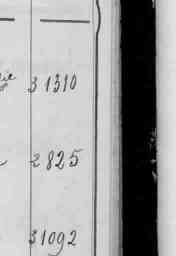 31310
2825
31092